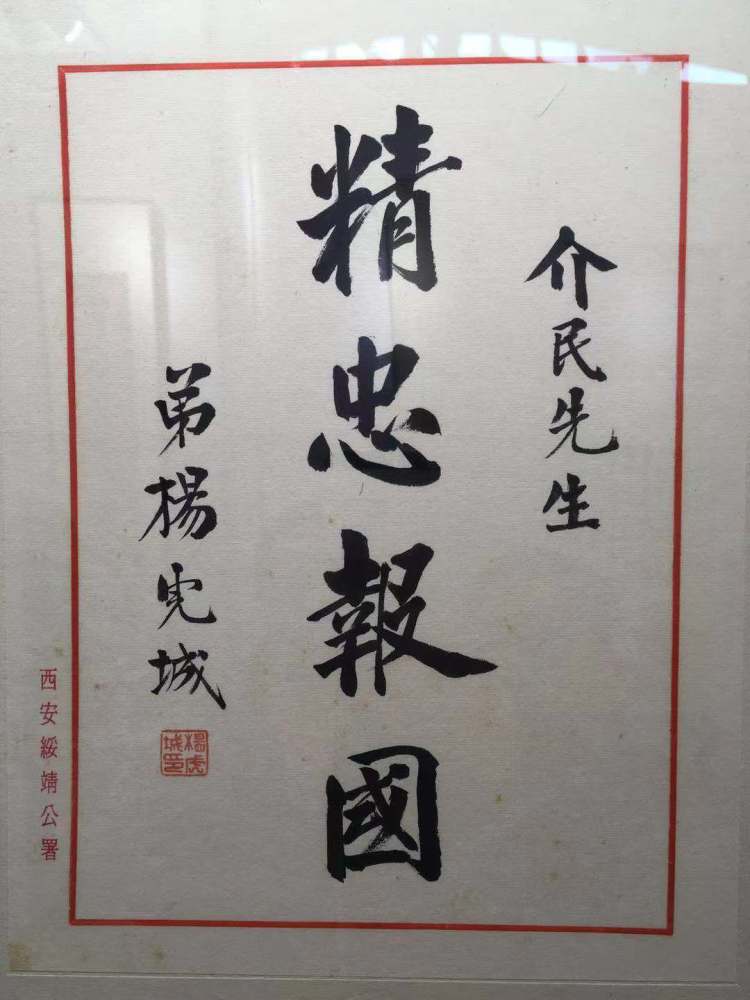 介民先生
精忠報國
弟楊虎城
楊虎城印
西安綏靖公署